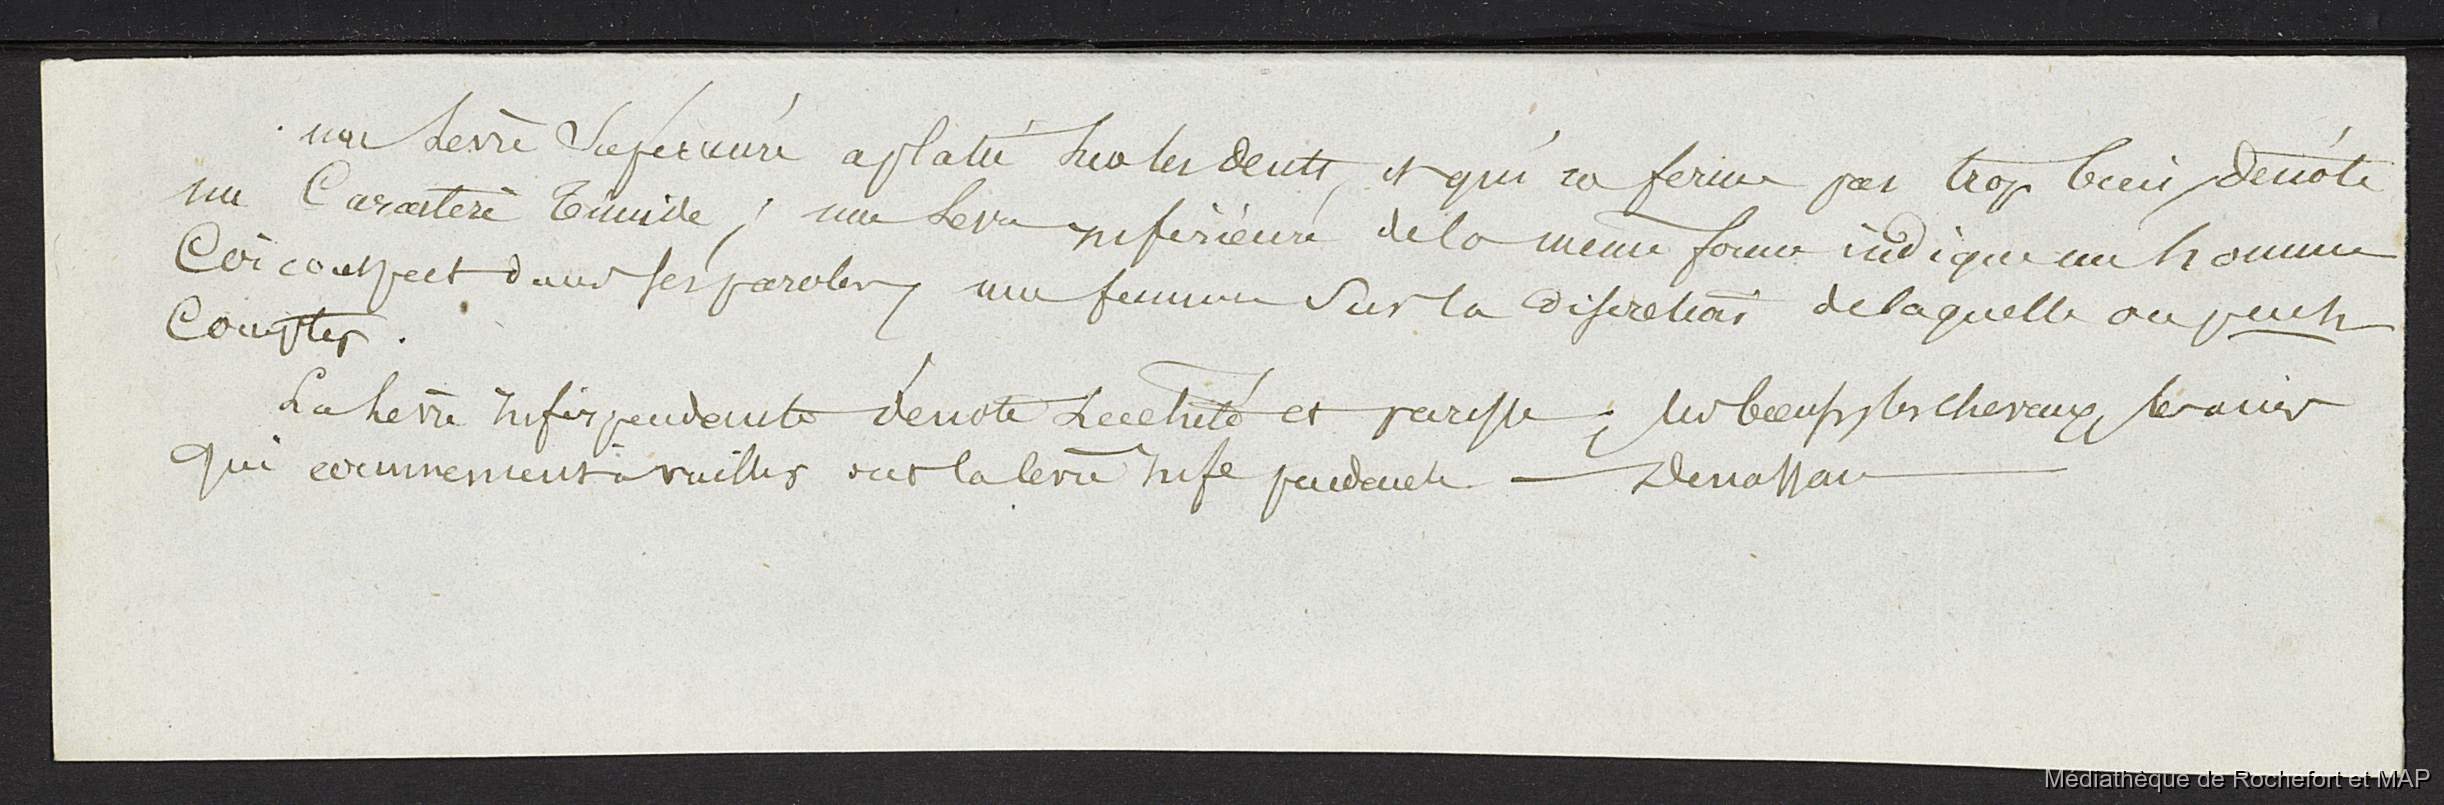 une levre Superieure aplatie sur les dents, et qui ne ferme pas trop bien, denote
un Caractere timide ; une levre inferieure de la meme forme indique un homme
Circonspect dans ses paroles, une femme Sur la discretion de laquelle on peut
Compter.
La levre infer pendante denote Lacheté et paresse ; les boeufs, les chevaux, les anies
qui viellis ont la levre infe pendante —
Médiathèque de Rochefort et MAP